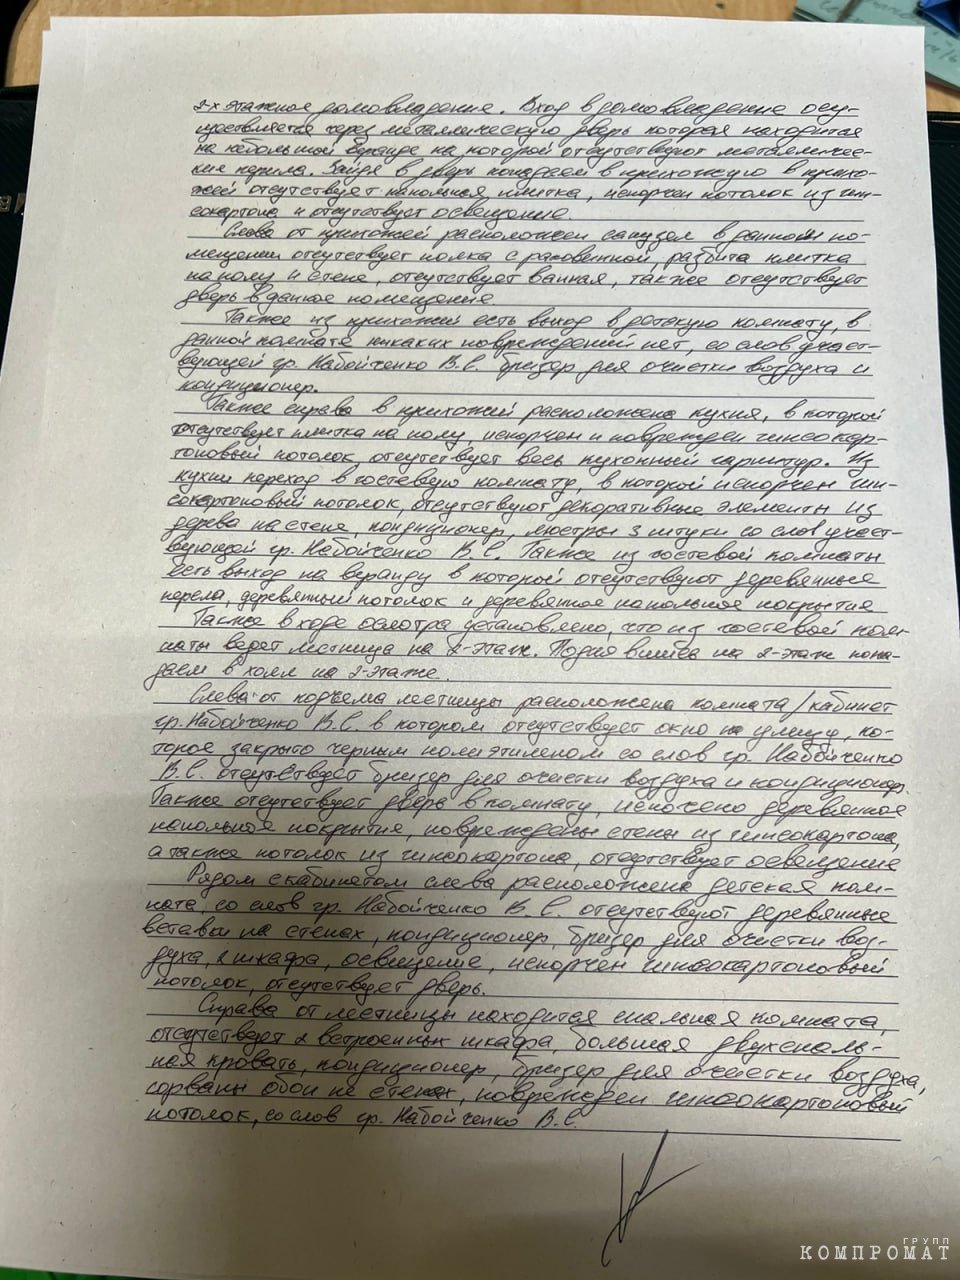 2-х этажное домовладение. Вход в домовладение осу-
ществляется через металлическую дверь которая находится
на небольшой веранде на которой отсутствуют металличес-
кие перила. Зайдя в дверь попадаем в прихожую в прихо-
жей отсутствует напольная плитка, испорчен потолок из гип-
сокартона и отсутствует освещение.
Слева от прихожей расположен санузел в данном по-
мещении отсутствует полка с раковиной, разбита плитка
на полу и стене, отсутствует ванная, также отсутствует
дверь в данное помещение
Также из прихожей есть выход в детскую комнату, в
данной комнате никаких повреждений нет, со слов участ-
вующей гр. Набойченко В.С. бризер для очистки воздуха и
кондиционер.
Также справа в прихожей расположена кухня, в которой
отсутствует плитка на полу, испорчен и поврежден гипсокар-
тоновый потолок, отсутствует весь кухонный гарнитур. Из
кухни переход в гостевую комнату, в которой испорчен гип-
сокартоновый потолок, отсутствуют декоративные элементы из
дерева на стене, кондиционер, люстры 3 штуки со слов участ-
вующей гр. Набойченко В.С. Также из гостевой комнаты
есть выход на веранду в которой отсутствуют деревянные
перела, деревянный потолок и деревянное напольное покрытие
Также в ходе осмотра установлено, что из гостевой ком-
наты ведет лестница на 2-этаж. Поднявшись на 2-этаж попа-
даем в холл на 2-этаже.
Слева от подъема лестницы расположена комната/кабинет
гр. Набойченко В.С. в котором отсутствует окно на улицу, ко-
торое закрыто черным полиэтиленом со слов гр. Набойченко
В.С. отсутствует бризер для очистки воздуха и кондиционер.
Также отсутствует дверь в комнату, деревянное
напольное покрытие, повреждены стены из гипсокартона,
а также потолок из гипсокартона, отсутствует освещение
Рядом с кабинетом слева расположена детская ком-
ната, со слов гр. Набойченко В.С. отсутствуют деревянные
вставки на стенах, кондиционер, бризер для очистки воз-
духа, 2 шкафа, освещение, испорчен гипсокартоновый
потолок, отсутствует дверь.
Справа от лестницы находится спальная комната,
отсутствует 2 встроенных шкафа, большая двухспаль-
ная кровать, кондиционер, бризер для очистки воздуха,
сорваны обои не стенах, поврежден гипсокартоновый
потолок, со слов гр. Набойченко В.С.
ГРУПП
КОМПРОМАТ